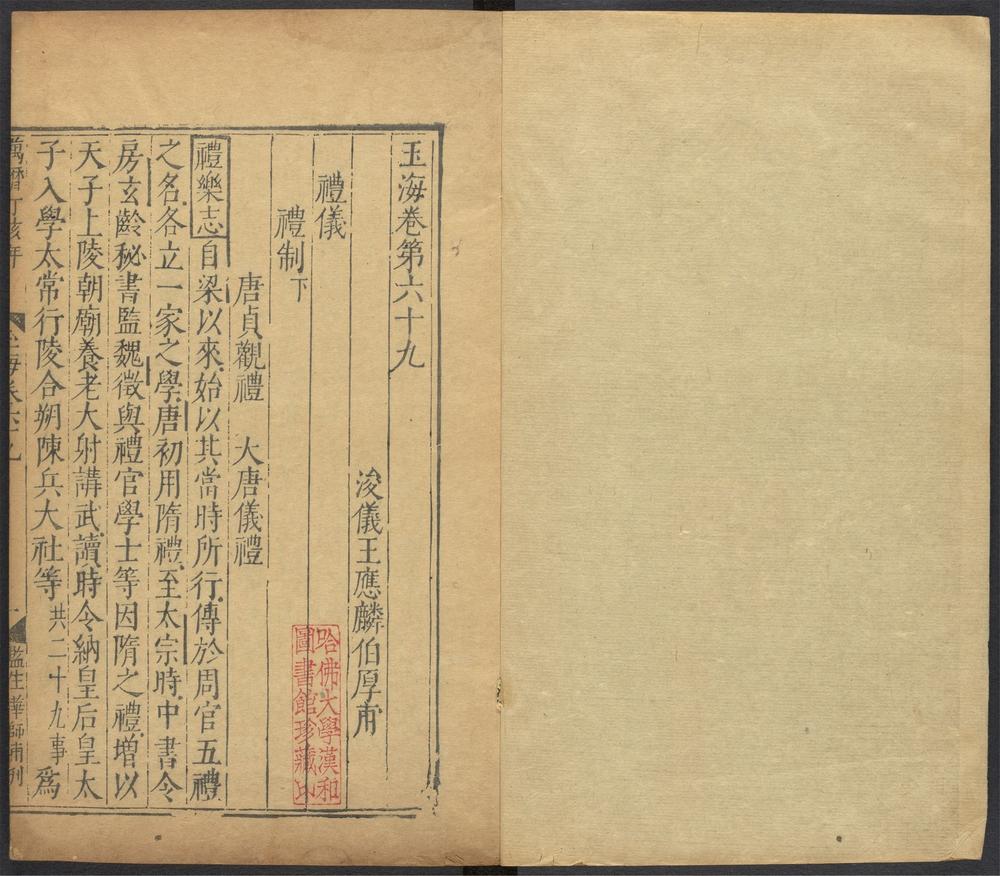 玉海卷第六十九
浚儀王應麟伯厚甫
禮儀
禮制下
唐貞觀禮 大唐儀禮
禮樂志自梁以來始以其當時所行傳於周官五禮
之名各立一家之學唐初用隋禮至太宗時中書令
房玄齡秘書監魏徵與禮官學士等因隋之禮增以
天子上陵朝廟養老大射講武讀時令納皇后皇太
子入學太常行陵合朔陳兵大社等共二十九事爲
萬曆丁亥年
玉海卷六十九
一
監生華師甫刊
哈佛大學漢和
圖書館珍藏印